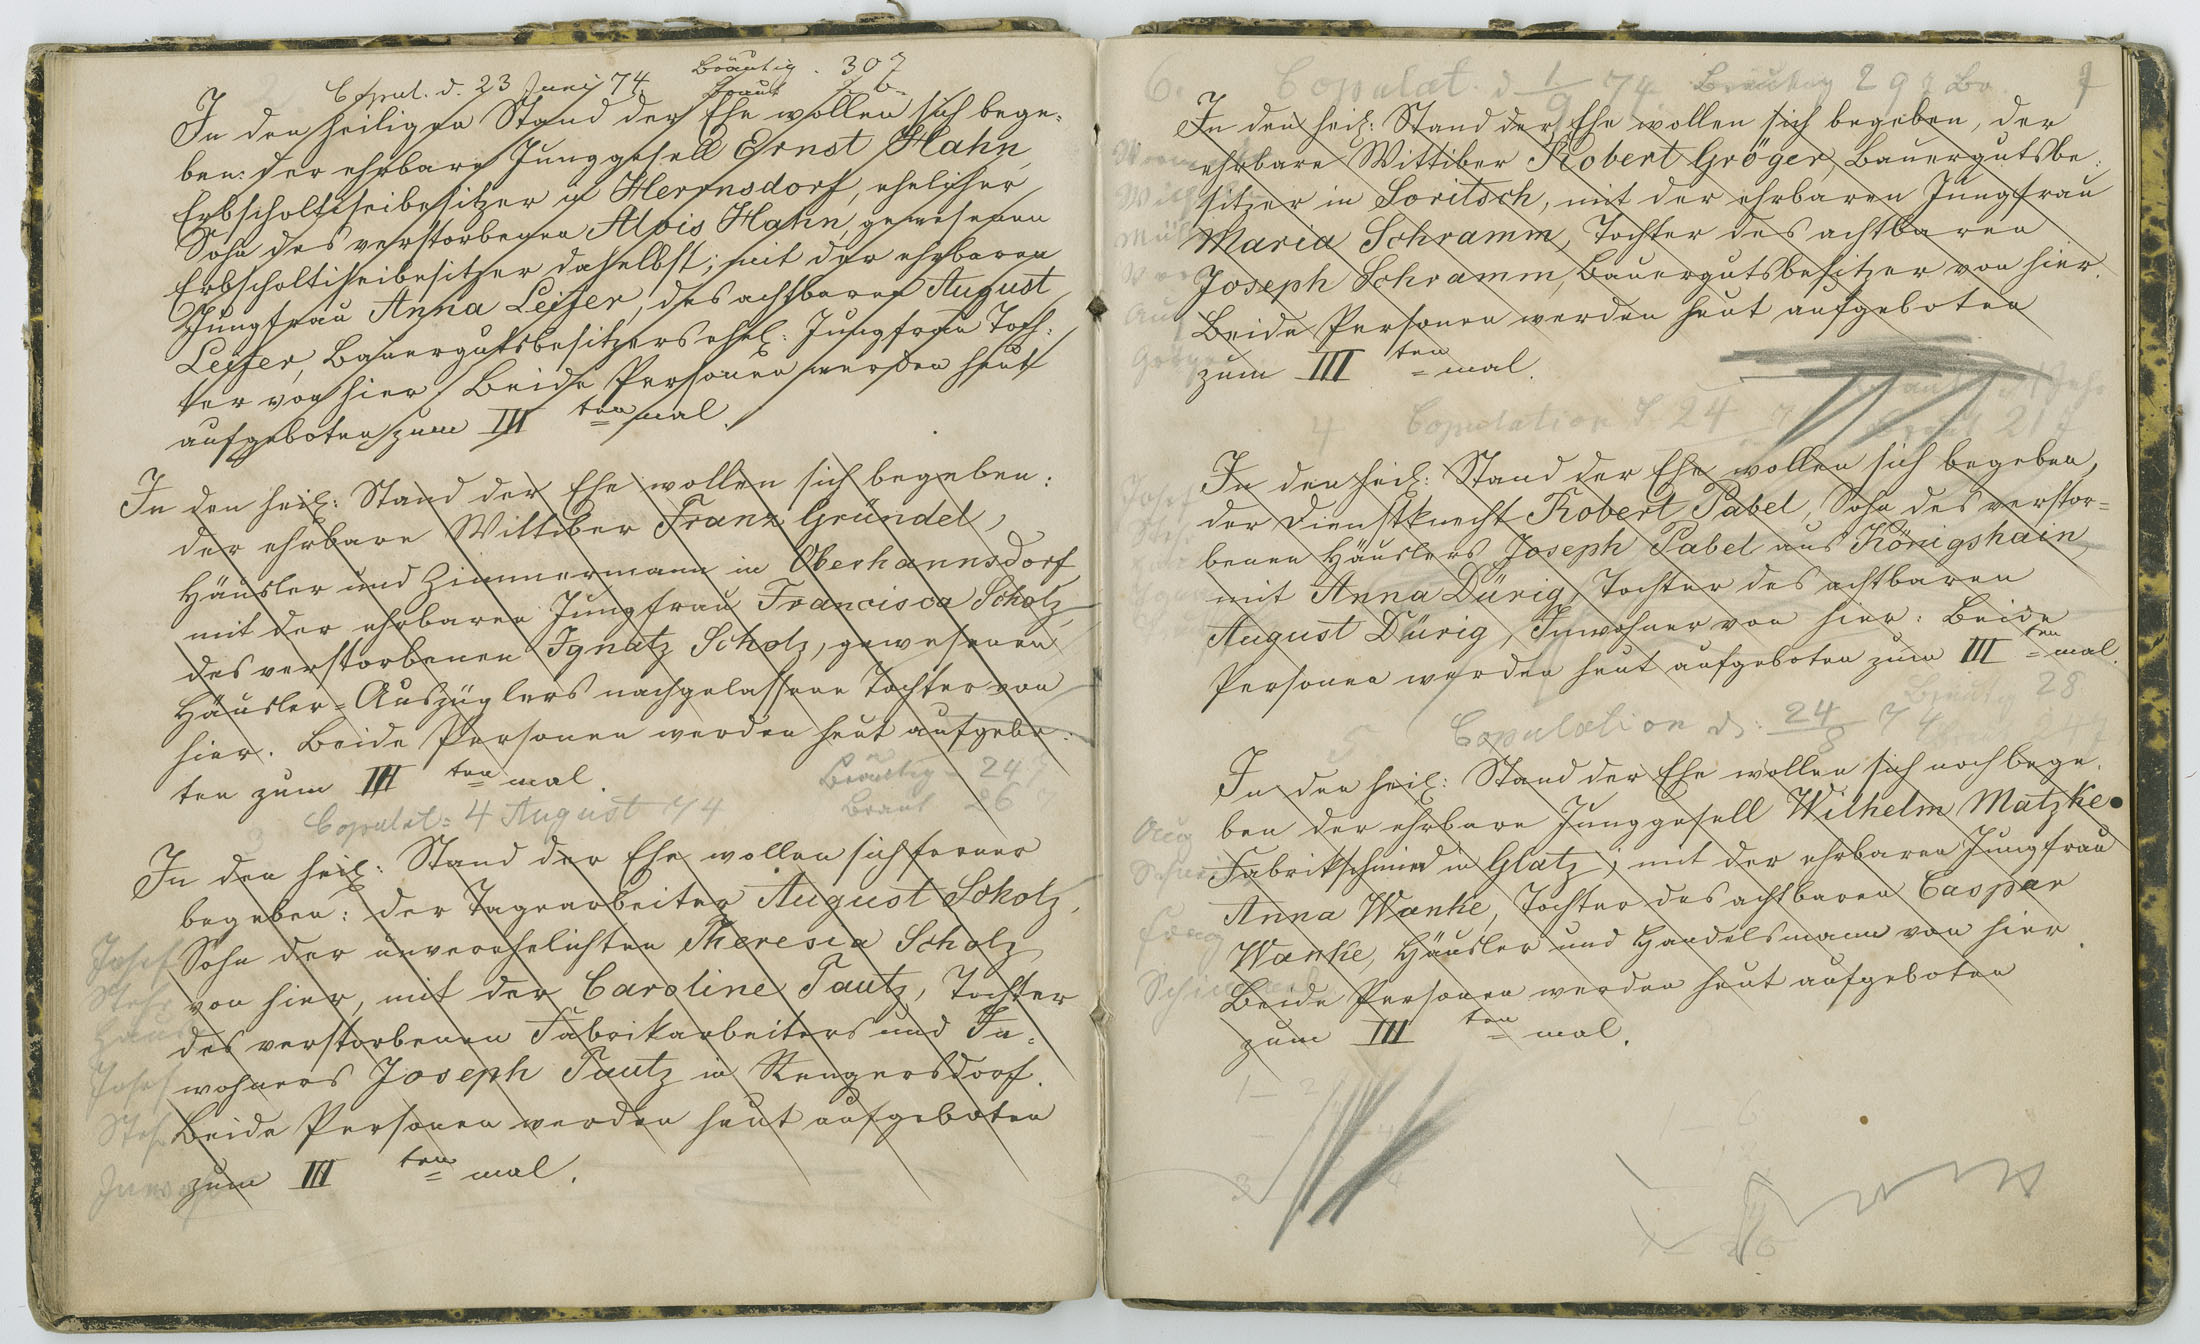 Copul. d. 23 Juni 74. Bräutig. 30 J
Braut
In den heiligen Stand der Ehe wollen sich bege-
ben: der ehrbare Junggesell Ernst Hahn,
Erbscholtiseibesitzer in Herrnsdorf, ehelicher
Sohn des verstorbenen Alois Hahn, gewesenen
Erbscholtiseibesitzer daselbst; mit der ehrbaren
Jungfrau Anna Leifer, des achtbaren August
Leifer, Bauergutsbesitzers ehel: Jungfrau Toch-
ter von hier. Beide Personen werden heut
aufgeboten zum III ten mal.
In den heil: Stand der Ehe wollen sich begeben:
der ehrbare Wittiber Franz Gründel,
Häusler und Zimmermann in Oberhannsdorf,
mit der ehrbaren Jungfrau Francisca Scholz,
des verstorbenen Ignatz Scholz, gewesenen
Häusler-Auszüglers nachgelassene Tochter von
hier. Beide Personen werden heut aufgebo-
ten zum III ten mal.
Bräutig 24 J
3 Copulat: 4 August 74 Braut 26 J
In den heil: Stand der Ehe wollen sich ferner
begeben: der Tagearbeiter August Scholz,
Sohn der unverehelichten Theresia Scholz
von hier, mit der Caroline Tautz, Tochter
des verstorbenen Fabrikarbeiters und In-
wohners Joseph Tautz in Rengersdorf.
Beide Personen werden heut aufgeboten
zum III ten mal.
Josef
Stehr
Josef
Steh
6. Copulat. d 1/9 74. Bräutig 29 J Br. 7
In den heil: Stand der Ehe wollen sich begeben, der
ehrbare Wittiber Robert Gröger, Bauergutsbe-
sitzer in Soritsch, mit der ehrbaren Jungfrau
Maria Schramm, Tochter des achtbaren
Joseph Schramm, Bauergutsbesitzer von hier.
Beide Personen werden heut aufgeboten
zum III ten mal.
4 Copulation d 24 21 J
In den heil: Stand der Ehe wollen sich begeben,
der Dienstknecht Robert Pabel, Sohn des verstor-
benen Häuslers Joseph Pabel aus Königshain,
mit Anna Dürig, Tochter des achtbaren
August Dürig, Inwohner von hier. Beide
Personen werden heut aufgeboten zum III ten mal.
Bräutig 28
5 Copulation d: 24/8 74 Braut 24 J
In den heil: Stand der Ehe wollen sich noch bege-
ben der ehrbare Junggesell Wilhelm Matzke
Fabrikschmied in Glatz; mit der ehrbaren Jungfrau
Anna Wanke, Tochter des achtbaren Caspar
Wanke, Häusler und Handelsmann von hier.
Beide Personen werden heut aufgeboten
zum III ten mal.
Aug